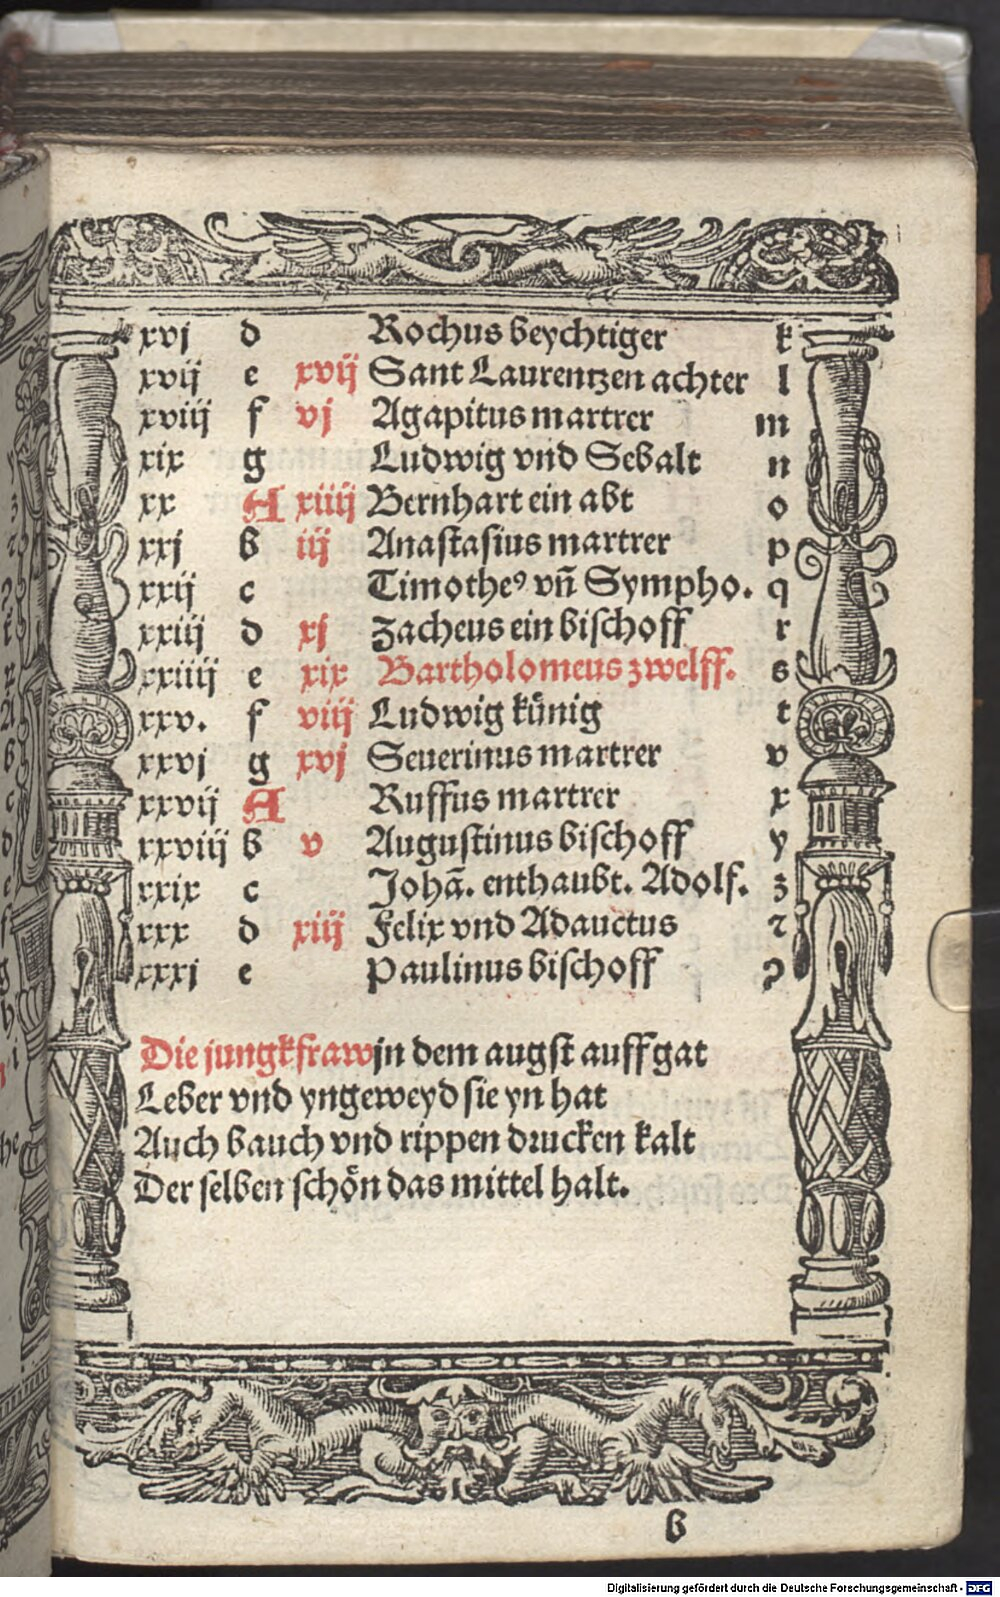 xvj d Rochus beychtiger k
xvij e xvij Sant Laurentzen achter l
xviij f vj Agapitus martrer m
xix g Ludwig vnd Sebalt n
xx A xiiij Bernhart ein abt o
xxj b iij Anastasius martrer p
xxij c Timotheꝰ vn̄ Sympho. q
xxiij d xj Zacheus ein bischoff r
xxiiij e xix Bartholomeus zwelff. s
xxv. f viij Ludwig künig t
xxvj g xvj Seuerinus martrer v
xxvij A Ruffus martrer x
xxviij b v Augustinus bischoff y
xxix c Johā. enthaubt. Adolf. z
xxx d xiij Felix vnd Adauctus ꝛ
xxxj e Paulinus bischoff ꝯ
Die jungkfraw jn dem augst auff gat
Leber vnd yngeweyd sie yn hat
Auch bauch vnd rippen drucken kalt
Der selben schön das mittel halt.
b
Digitalisierung gefördert durch die Deutsche Forschungsgemeinschaft - DFG